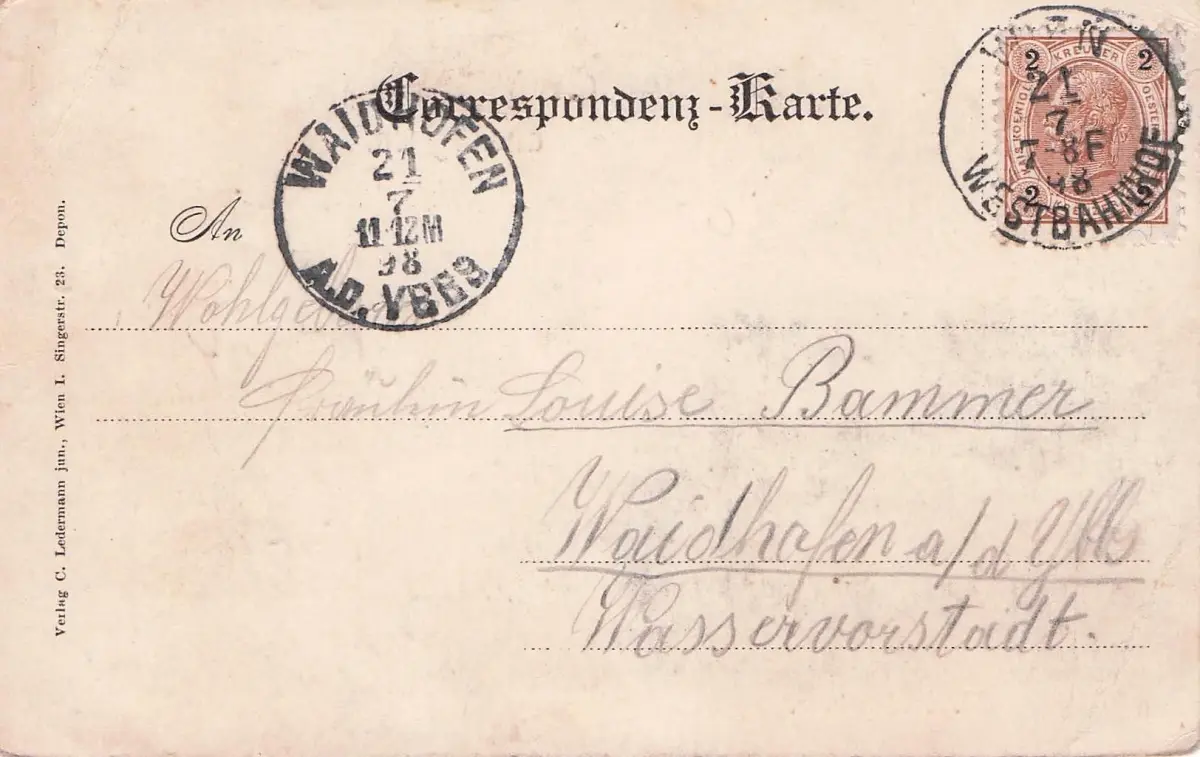 Correspondenz-Karte.
WIEN
21
7
7-8F
98
WESTBAHNHOF
2 KREUZER 2
2 2
WAIDHOFEN
21
7
11-12M
98
A.D. YBBS
An
Wohlgeboren
Fräulein Louise Bammer
Waidhofen a/d Ybbs
Wasservorstadt.
Verlag C. Ledermann jun., Wien I. Singerstr. 23. Depon.